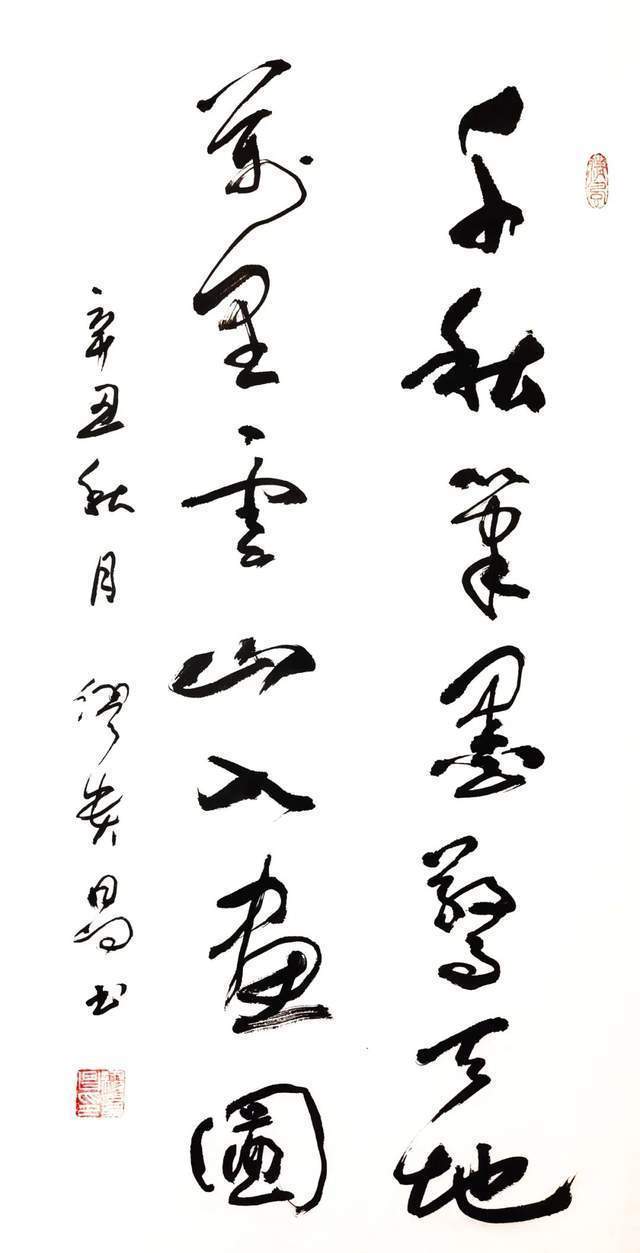 千秋筆墨驚天地
萬里雲山入畫圖
辛丑秋月 缪贵昌书